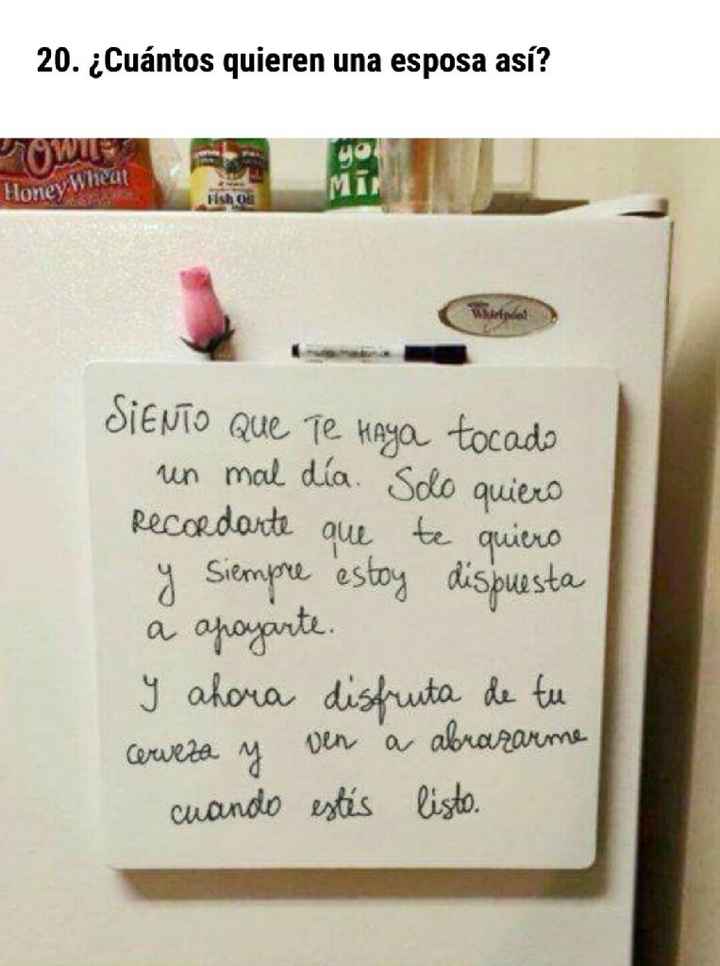 20. ¿Cuántos quieren una esposa así?
Honey Wheat
Fish Oil
yo
Whirlpool
SiENTO QUE TE HAya tocado
un mal día. Solo quiero
RECORdarte que te quiero
y siempre estoy dispuesta
a apoyarte.
y ahora disfruta de tu
cerveza y ven a abrazarme
cuando estés listo.